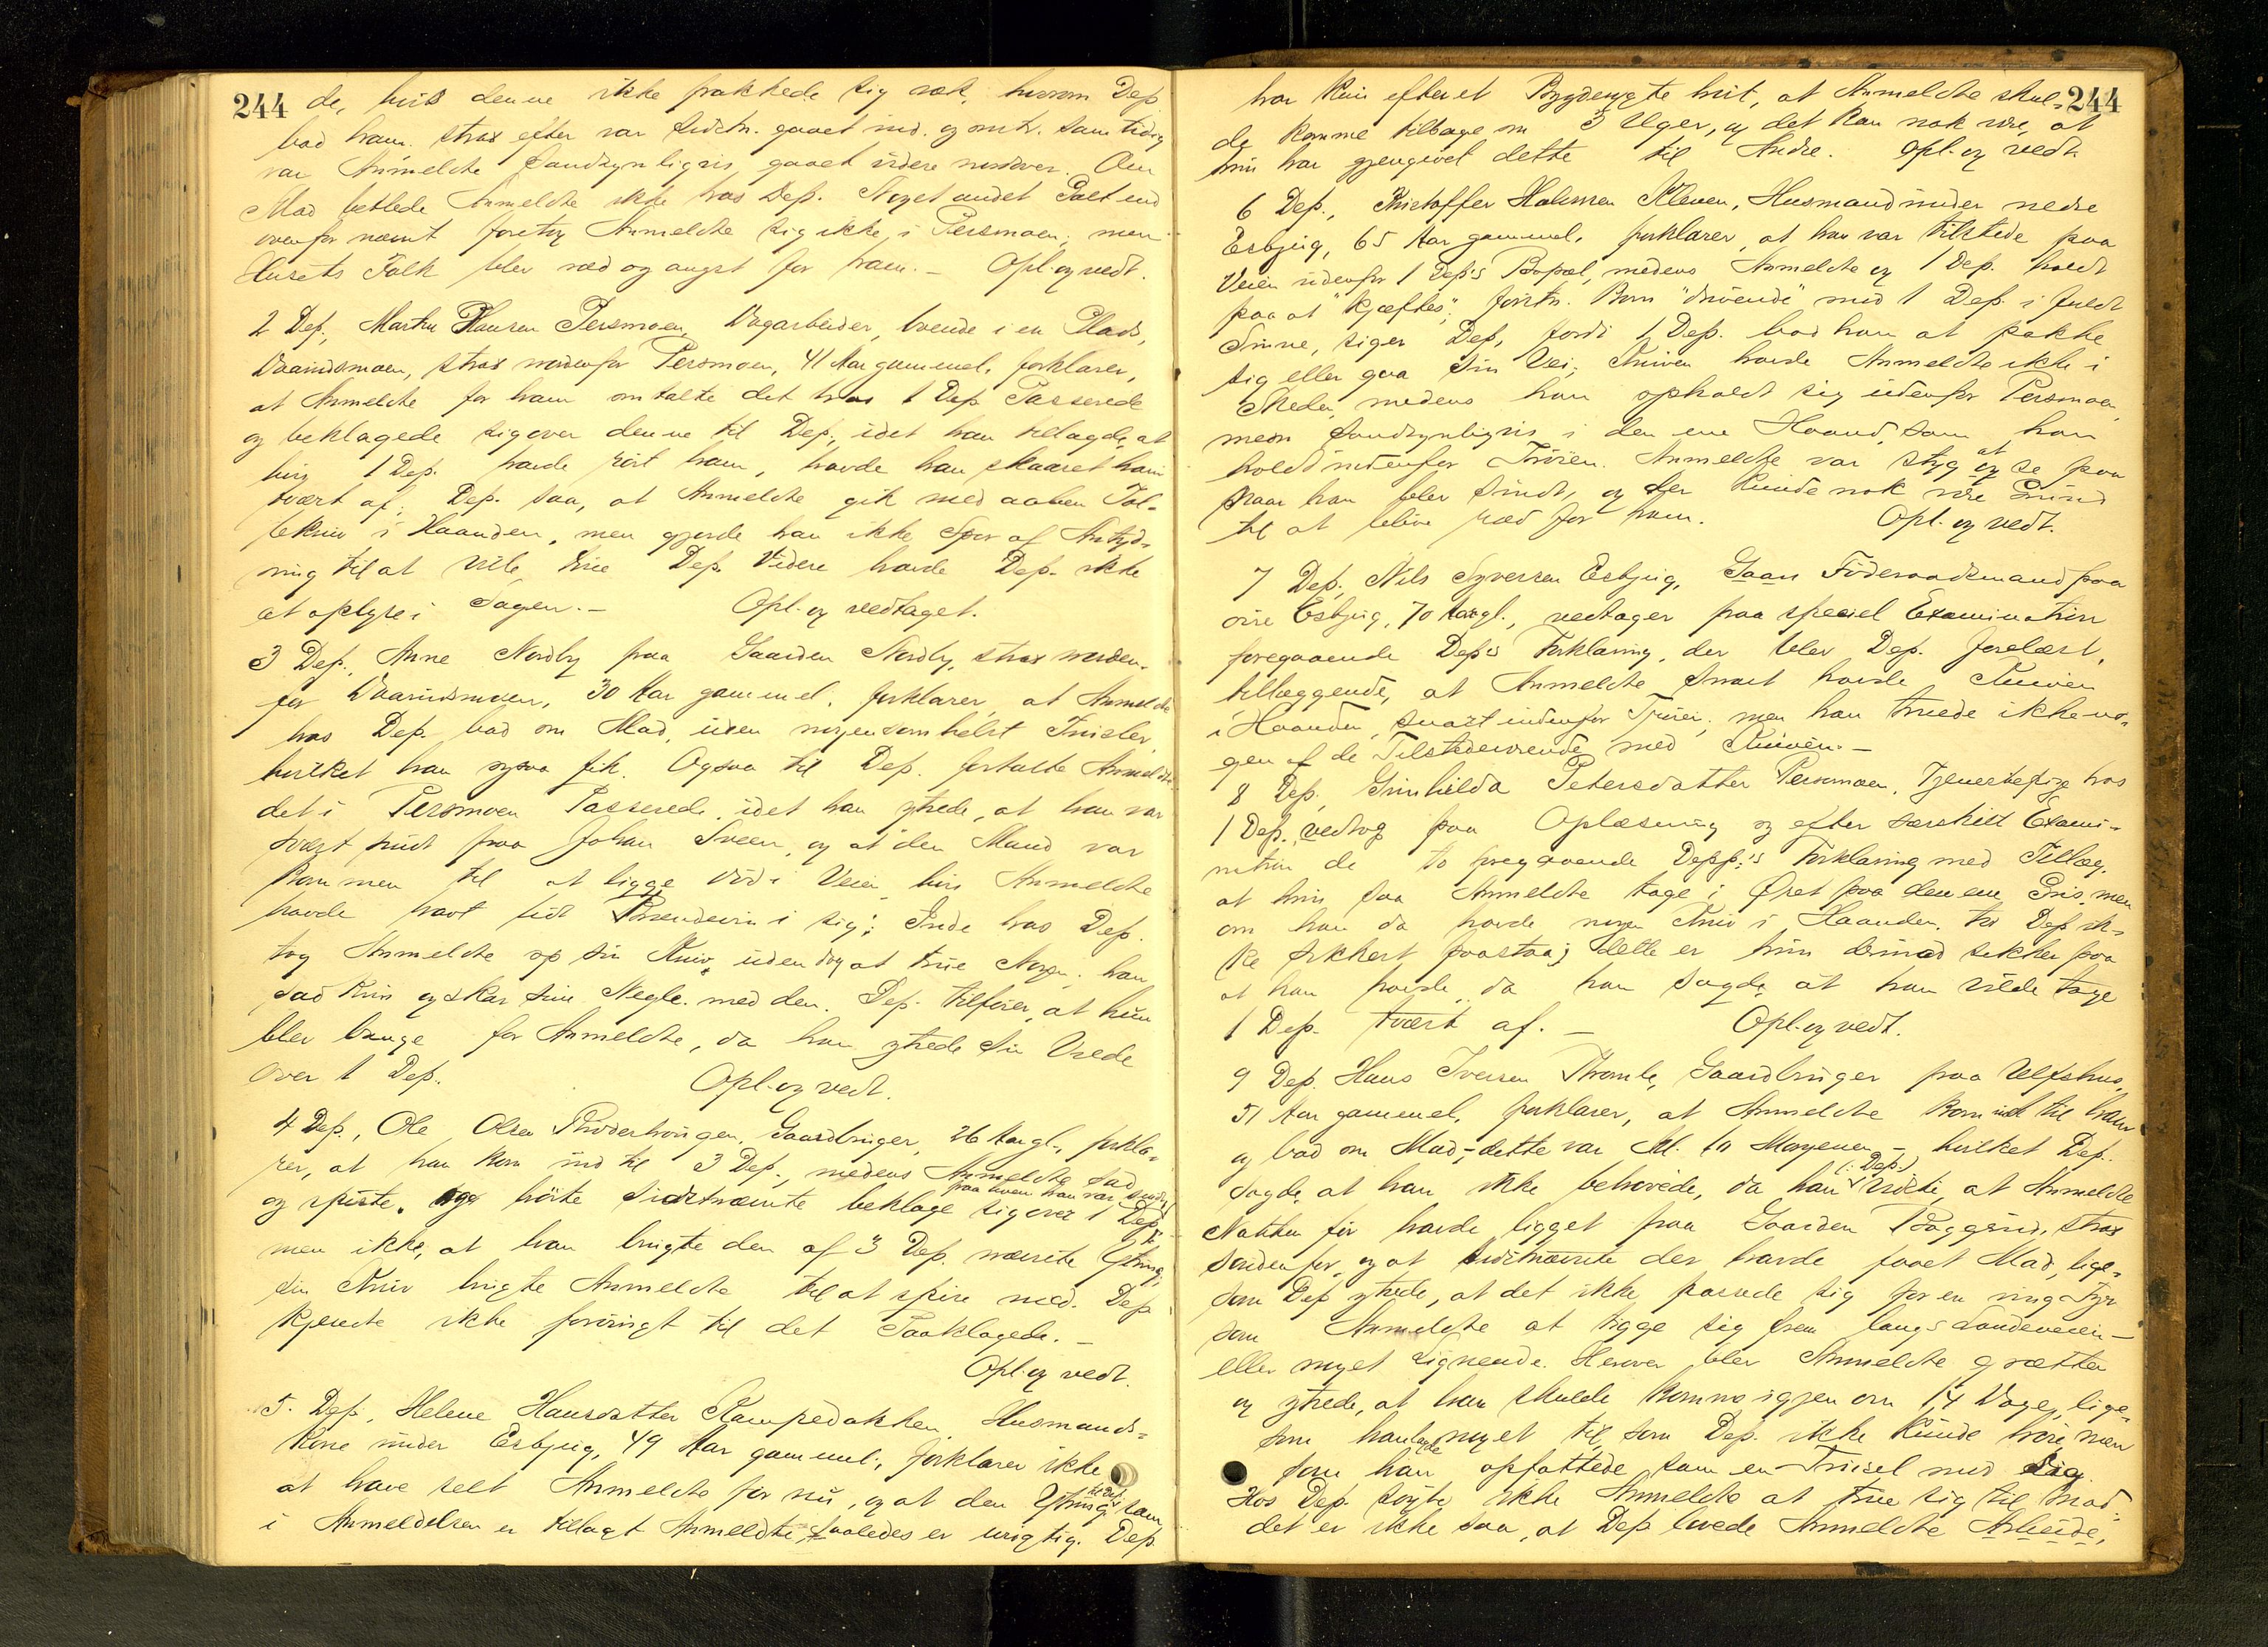 244 de, hvis denne ikke pakkede sig væk, hvorom Dep.
bad ham. Strax efter var sidstn. gaaet ind. og omtr. samtidig
var Anmeldte sandsynligvis gaaet videre nordover. Om
Mad betlede Anmeldte ikke hos Dep. Noget andet Galt end
ovenfor nævnt foretog Anmeldte sig ikke, i Persmoen; men
Husets Folk blev ræd og angst for ham. – Opl. og vedt.
2 Dep., Marthin Hansen Persmoen, Dagarbeider, boende i en Plads,
strax nordenfor Persmoen, 41 Aar gammel, forklarer,
at Anmeldte for ham omtalte det hos 1 Dep. Passerede
og beklagede sig over denne til Dep., idet han tillagde, at
hvis 1 Dep. havde rört ham, havde han skaaret ham
tvært af; Dep. saa, at Anmeldte gik med aaben Tol-
lekniv i Haanden, men gjorde han ikke Spor af Antyd-
ning til at ville true Dep. Videre havde Dep. ikke
at oplyse i Sagen. – Opl. og vedtaget.
3 Dep., Anne Nordby paa Gaarden Nordby, strax norden-
for 30 Aar gammel, forklarer, at Anmeldte
hos Dep. bad om Mad, uden nogensomhelst Trusler,
hvilket han ogsaa fik. Ogsaa til Dep. fortalte Anmeldte
det i Persmoen Passerede, idet han ytrede, at han var
svært sindt paa Johan Sveen, og at den Mand var
kommen til at ligge död i Veien, hvis Anmeldte
havde havt lidt Brændevin i sig; Inde hos Dep.
tog Anmeldte op sin Kniv, uden dog at true Nogen; han
sad kun og skar sine Negle med den. Dep. tilföier, at hun
blev bange for Anmeldte, da han ytrede sin Vrede
over 1 Dep. Opl. og vedt.
4 Dep., Ole Olsen Gaardbruger, 26 Aar gl., forkla-
rer, at han kom ind til 3 Dep., medens Anmeldte sad
paa hvem han var sindt
og spiste, og hörte sidstnævnte beklage sig over 1 Dep.,
men ikke, at han brugte den af 3 Dep. nævnte Ytring,
sin Kniv brugte Anmeldte til at spise med. Dep.
kjendte ikke forövrigt til det Paaklagede. –
Opl. og vedt.
5. Dep., Helene Hansdatter Husmands-
kone under Esbjug, 49 Aar gammel, forklarer ikke
at have seet Anmeldte för nu, og at den Ytring, som
i Anmeldelsen er tillagt Anmeldte, saaledes er urigtig. Dep.
har kun efter et Bygderygte hört, at Anmeldte skul- 244
de komme tilbage om 3 Uger, og det kan nok være, at
hun har gjengivet dette til Andre. Opl. og vedt.
6 Dep., Kristoffer Kleven, Husmand under nedre
Esbjug, 65 Aar gammel, forklarer, at han var tilstede paa
Veien udenfor 1 Dep's Bopæl, medens Anmeldte og 1 Dep. holdt
paa at "kjæftes"; förstn. kom "drivende" mod 1 Dep. i fuldt
Sinne, siger Dep., fordi 1 Dep. bad ham at pakke
sig eller gaa sin Vei; Kniven havde Anmeldte ikke i
Sliden, medens han opholdt sig udenfor Persmoen,
men sandsynligvis i den ene Haand, som han
holdt indenfor Tröien. Anmeldte var styg at se paa
naar han blev sindt, og der kunde nok være Grund
til at blive ræd for ham. Opl. og vedt.
7 Dep., Nils Syversen Esbjug, Föderaadsmand paa
övre Esbjug, 70 Aar gl., vedtager paa speciel Examination
foregaaende Dep's Forklaring, der blev Dep. forelæst,
tillæggende, at Anmeldte snart havde Kniven
i Haanden, snart indenfor Tröien; men han truede ikke no-
gen af de Tilstedeværende med Kniven. –
8 Dep., Gunhilda Petersdatter Persmoen, Tjenestepige hos
1 Dep., vedtog paa Oplæsning og efter særskilt Exami-
nation de to foregaaende Depp.'s Forklaring med Tillæg,
at hun saa Anmeldte tage i Öret paa den ene Gris, men
om han da havde nogen Kniv i Haanden, tör Dep. ik-
ke sikkert paastaa; dette er hun derimod sikker paa
at han havde, da han sagde, at han vilde tage
1 Dep. tvært af. – Opl. og vedt.
9 Dep. Hans Iversen Gaardbruger paa Ulfshus,
51 Aar gammel, forklarer, at Anmeldte kom ind til ham
og bad om Mad, – dette var Kl. 10 Morgenen – hvilket Dep.
sagde, at han ikke behövede, da han (: Dep.) vidste, at Anmeldte
Natten för havde ligget paa Gaarden strax
söndenfor, og at sidstnævnte der havde faaet Mad, lige-
som Dep. ytrede, at det ikke passede sig for en ung Fyr
som Anmeldte at tigge sig frem langs Landeveien –
eller noget Lignende. Herover blev Anmeldte grætten
og ytrede, at han skulde komme igjen om 14 Dage, lige-
som han lagde noget til, som Dep. ikke kunde höre, men
som han opfattede som en Trusel mod sig.
Hos Dep. sögte ikke Anmeldte at true sig til Mad;
det er ikke saa, at Dep. lovede Anmeldte Arbeide,